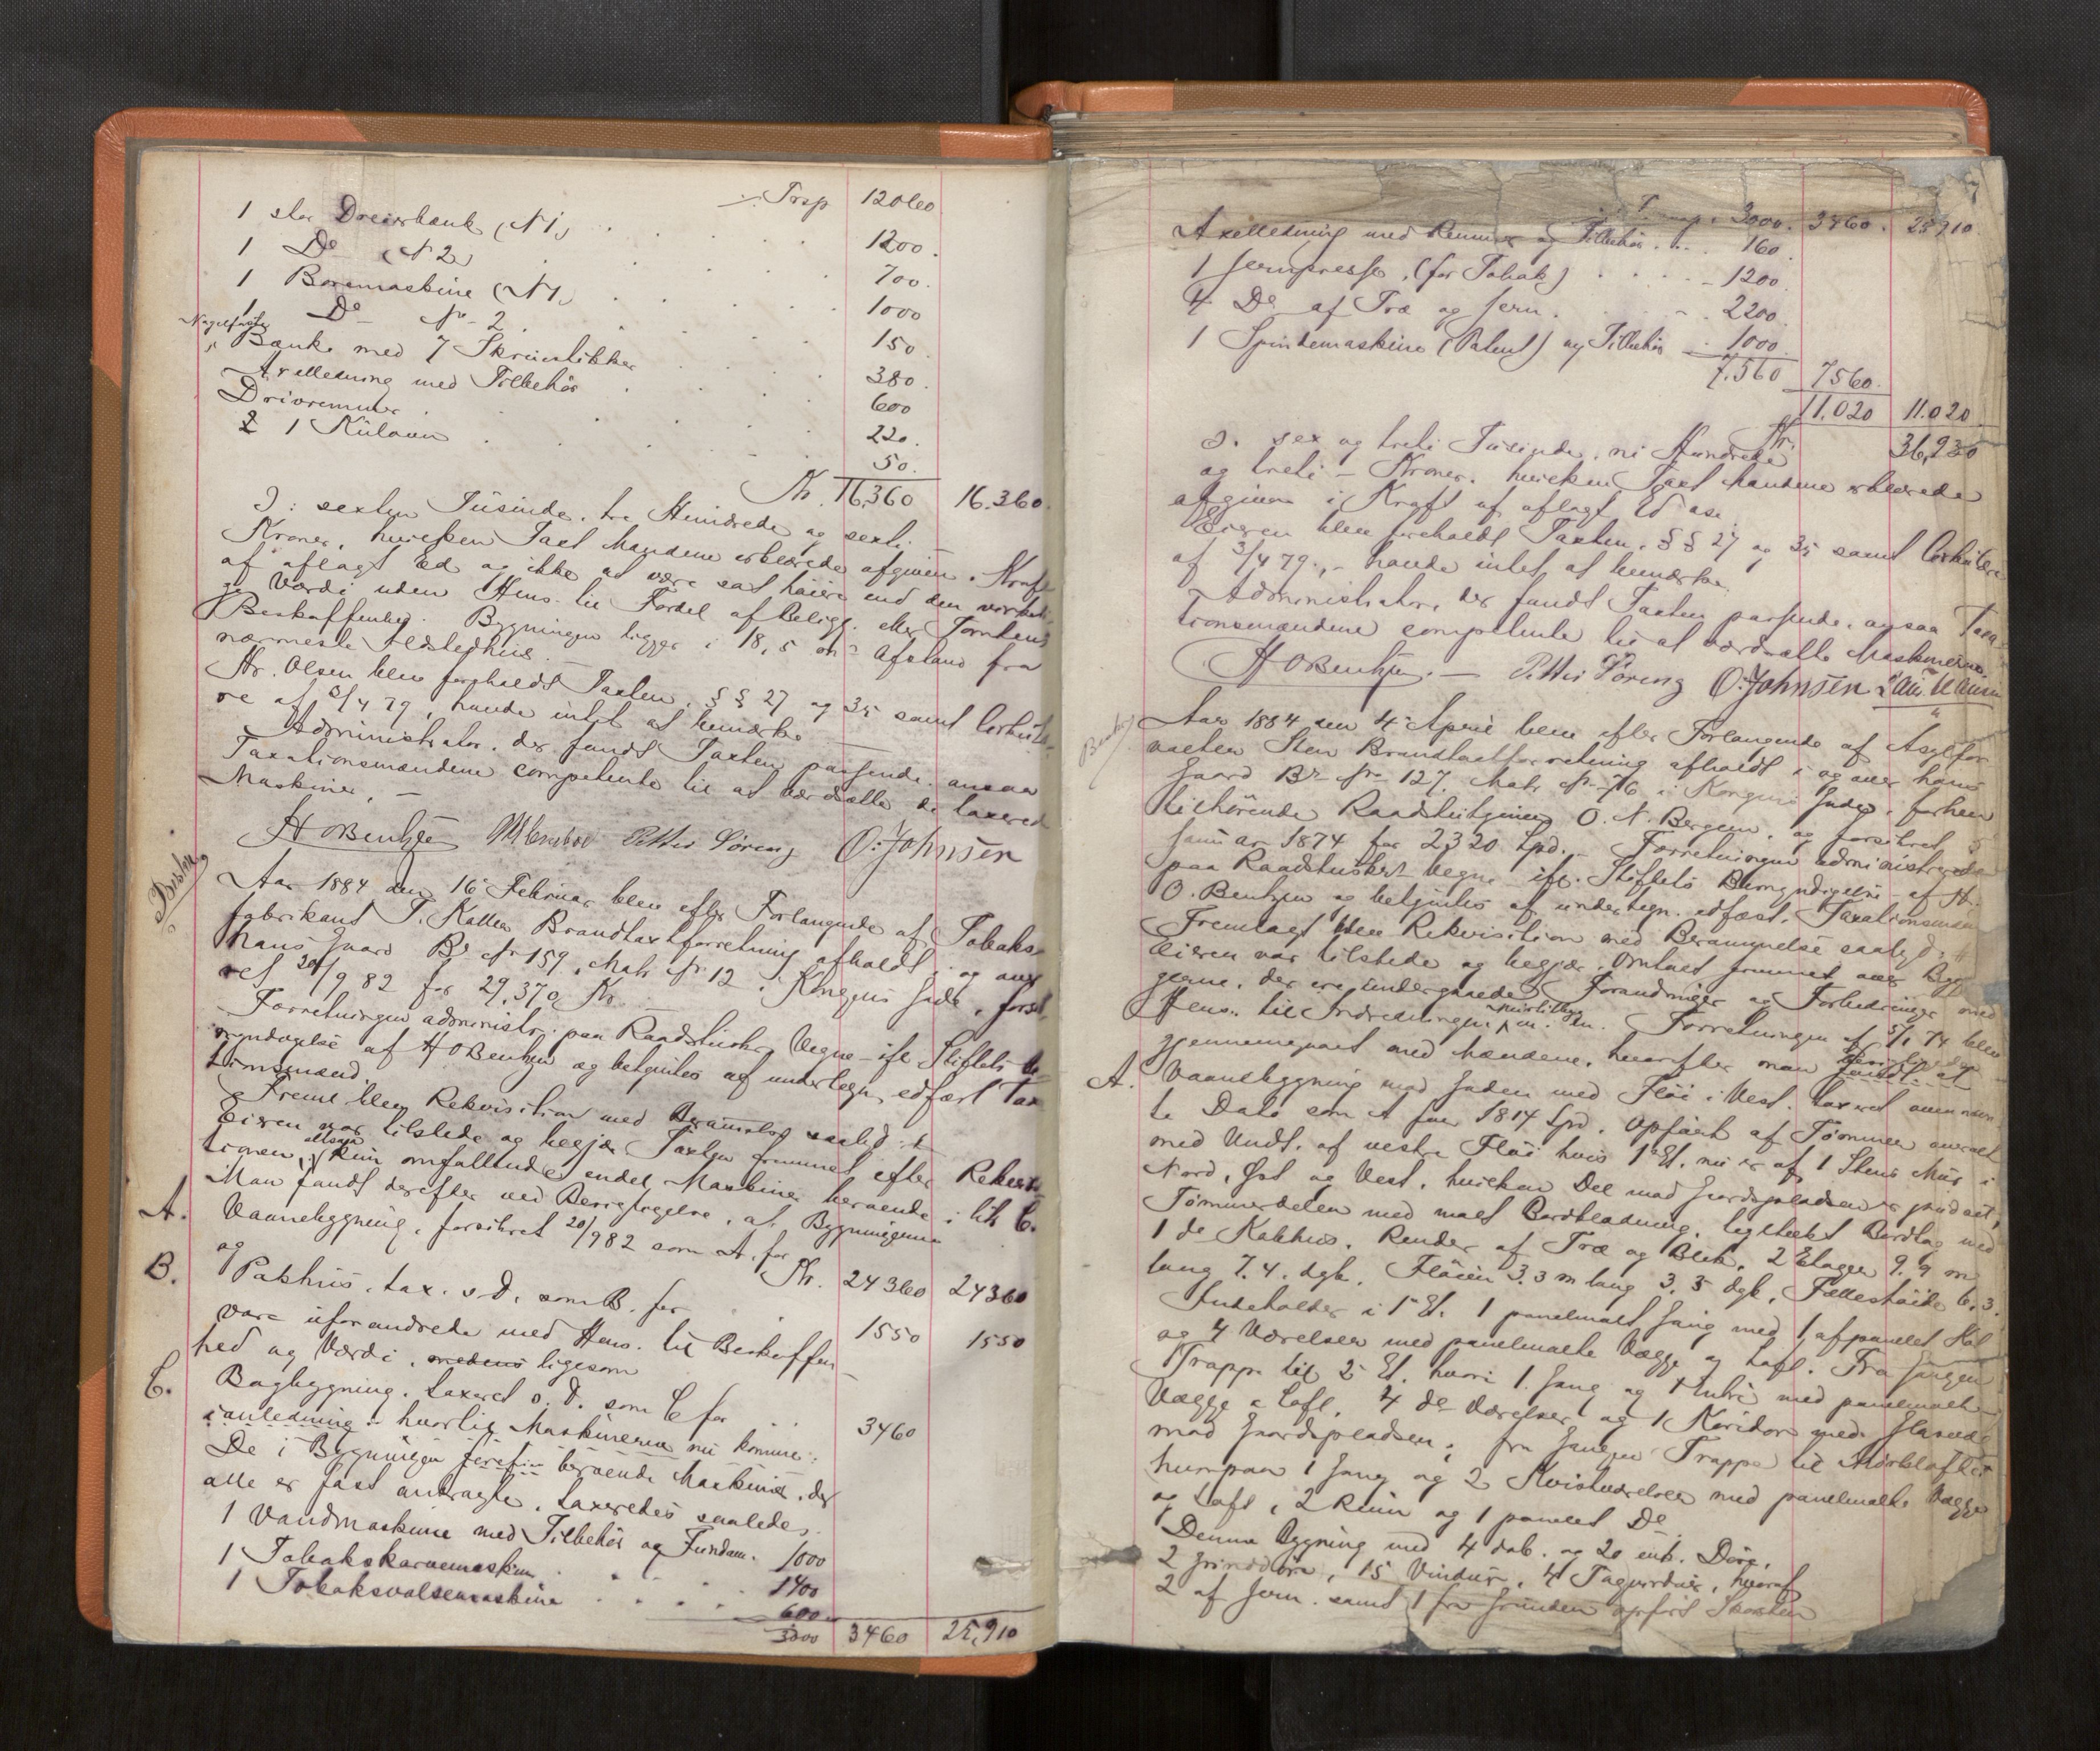 Trsp 12060
1 stor Dreierbænk (N 1) . . . 1200.
1 Do (N 2) . . . 700.
1 Boremaskine (N 1) . . . 1000
1 Do No 2 . . . 150
Nagelfaste
Bænke med 7 Skruestikker . . . 380.
Axelledning med Tilbehør . . . 600
Drivremmer . . . 220.
1 Kulovn . . . 50.
Kr. 16,360 16.360.
ɔ: sexten Tusinde, tre Hundrede og sexti
Kroner, hvilken Taxt Mændene erklærede afgiven i Kraft
af aflagt Ed og ikke at være sat høiere end den virkeli-
ge Værdi uden Hens. til Fordel af Beligg. eller Tomtens
Beskaffenhed. Bygningen ligger i 18,5 m Afstand fra
nærmeste Ildstedhus.
Hr. Olsen blev foreholdt Taxtlov. §§ 27 og 35 samt Cirkulæ-
re af 3/4 79, havde intet at bemærke
Administrator, der fandt Taxten passende, ansaa
Taxationsmændene competente til at værdsætte de taxered
Maskiner. —
H O Bentzen Petter Søreng O. Johnsen
Aar 1884 den 16 Februar blev efter Forlangende af Tobaks-
fabrikant T. Brandtaxtforretning afholdt i og over
hans Gaard Br No 159, Matr No 12 i Kongens Gade, forsik
ret 20/9 82 for 29,370 Kr.
Forretningen administr. paa Raadstuens Vegne ifl. Stiftets Be-
myndigelse af H O Bentzen og betjentes af undertegn. edfæst Tax
tionsmænd.
Freml. blev Rekvisition med Berammelse saalyd. #
Eieren var tilstede og begjær Taxten fremmet efter Rekvisi-
tionen, altsaa kun omfattende endel Maskiner beroende i litr C.
Man fandt derefter ved Besigtigelse, at Bygningerne
A. Vaanebygning, forsikret 20/9 82 som A. for Kr. 24360 24360
og
B. Pakhus, tax. s. D. som B. for . 1550 1550
vare uforandrede med Hens. til Beskaffen
hed og Værdi, medens ligesom
C. Bagbygning, taxeret s. D. som C for . . . 3460
i anledning hvortil Maskinerne nu komme:
De i Bygningen beroende Maskiner, der
alle er fast anbragte, taxeredes saaledes.
1 Vandmaskine med Tilbehør og Fundam. 1000
1 Tobakskarvemaskin . . . 1400
1 Tobaksvalsemaskine . . . 600
3000 3460 25,910
Trsp. 3000. 3460. 25,910.
Axelledning med Remmer og Tilbehør . . . 160.
1 Jernpresse, (for Tobak) . . . 1200.
4 Do af Træ og Jern . . . 2200.
1 Spindemaskine (Patent) og Tilbehør . 1000.
7.560 7560.
11.020 11.020
Kr. 36,930
ɔ: sex og treti Tusinde, ni Hundrede
og treti — Kroner. hvilken Taxt Mændene erklærede
afgiven i Kraft af aflagt Ed osv.
Eieren blev foreholdt Taxtlov. §§ 27 og 35 samt Cirkulære
af 3/4 79., — havde intet at bemærke.
Administrator, der fandt Taxten passende, ansaa Taxa-
tionsmændene competente til at værdsætte Maskinerne.
H O Bentzen. — Petter Søreng O. Johnsen
Aar 1884 den 4 April blev efter Forlangende af Asylfor-
valter Sten Brandtaxtforretning afholdt i og over hans
Gaard Br No 127. Matr No 76 i Kongens Gade, forhen
tilhørende Raadstutjener O. N. Bergem. og forsikret d
Januar 1874 for 2320 Spd. — Forretningen administrerede
paa Raadstuens Vegne ifl. Stiftets Bemyndigelse af H.
O. Bentzen og betjentes af undertegn. edfæst. Taxationsmænd
Fremlagt blev Rekvisition med Berammelse saalyd: #
Eieren var tilstede og begjær. Omtaxt fremmet over Byg
gene, der ere undergaaede Forandringer og Forbedringer med
Hens. til Indredningen m. m. Forretningen af 5/1 74 blev
gjennemgaaet med Mændene, hvorefter man fandt at
A. Vaanebygning mod Gaden med Fløi i Vest. taxeret ovennævn-
te Dato som A for 1814 Spd. Opført af Tømmer overalt
med Undt. af vestre Fløi hvis 1ste Et. nu er af 1 Stens Mur i
Nord, Øst og Vest, hvilken Del mod Gaardspladsen er pudset,
Tømmerdelen med malt Bordklædning, tegltækt Bordtag med
1 de Kakhus. Render af Træ og Blik, 2 Etager 9.9 m
lang 7.4. dyb. Fløien 3.3 m lang 3.5 dyb, Fælleshøide 6.3.
Indeholder i 1ste Et. 1 panelmalt Gang med 1 afpanelet Hal
og 4 Værelser med panelmalte Vægge og Loft. Fra Gangen
Trappe til 2den Et. hvori 1 Gang og 1 Entré med panelmalte
Vægge & Loft, 4 de Værelser og 1 Koridor med Glasvæg
mod Gaardspladsen; fra Gangen Trappe til Mørkloftet
hvorpaa 1 Gang og 2 Kvistværelser med panelmalte Vægge
og Loft, 2 Rum og 1 panelet Do
Denne Bygning med 4 dob. og 20 enk. Døre,
2 Grinddøre, 15 Vinduer, 4 Tagvinduer, hvoraf
2 af Jern. samt 1 fra Grunden opført Skorsten